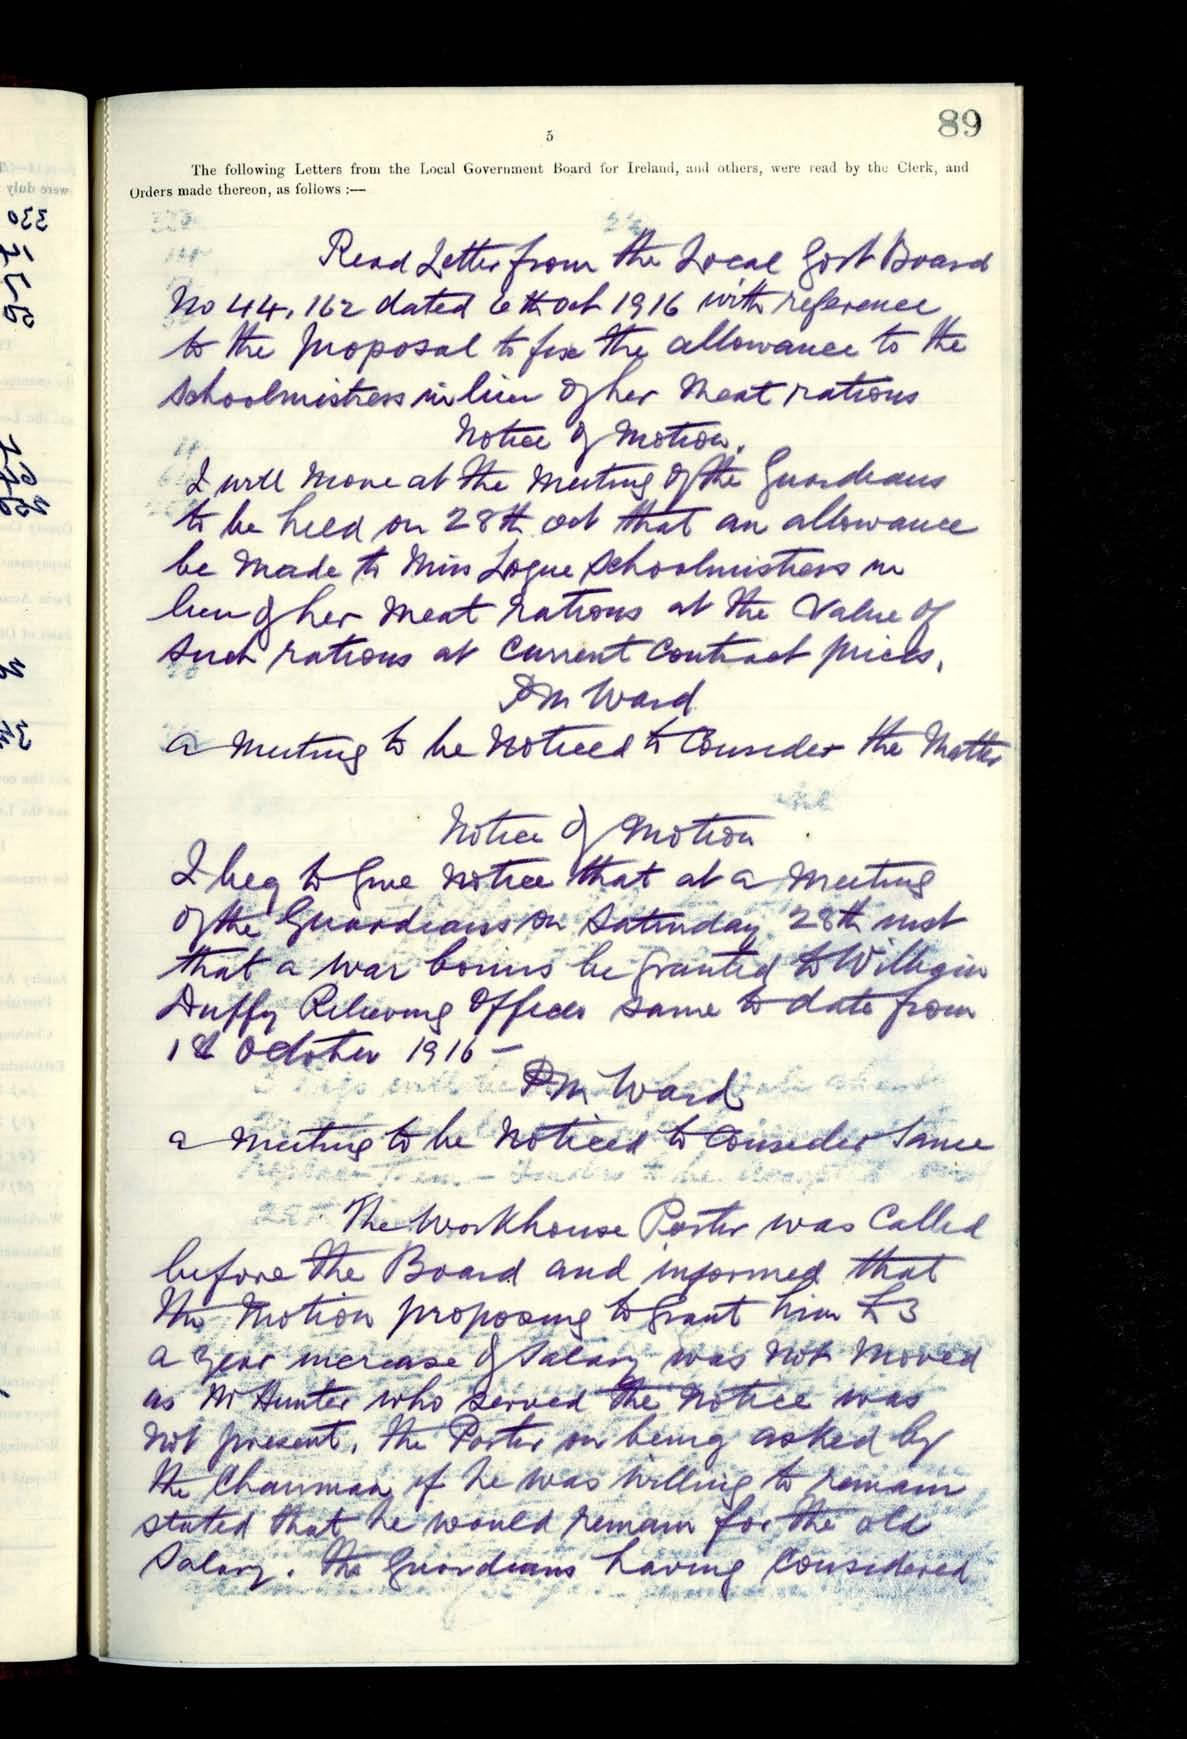 89
5
The following Letters from the Local Government Board for Ireland, and others, were read by the Clerk, and
Orders made thereon, as follows :—
Read Letter from the Local Govt Board
No 44,162 dated 6th Oct 1916 with reference
to the proposal to fix the allowance to the
Schoolmistress in lieu of her Meat rations
Notice of Motion.
I will Move at the Meeting of the Guardians
to be held on 28th Oct that an allowance
be Made to Miss Logue Schoolmistress in
lieu of her Meat rations at the Value of
Such rations at Current Contract prices.
PM Ward
a Meeting to be Noticed to Consider the Matter
Notice of Motion
I beg to Give Notice that at a Meeting
of the Guardians on Saturday 28th inst
that a War bonus be Granted to William
Duffy Relieving Officer Same to date from
1st October 1916 —
P.M. Ward
a Meeting to be Noticed to Consider Same
The Workhouse Porter was Called
before the Board and informed that
the Motion proposing to Grant him £3
a Year increase of Salary was Not Moved
as Mr Hunter who Served the Notice was
Not present. The Porter on being asked by
the Chairman if he was Willing to remain
Stated that he would remain for the old
Salary. The Guardians having Considered